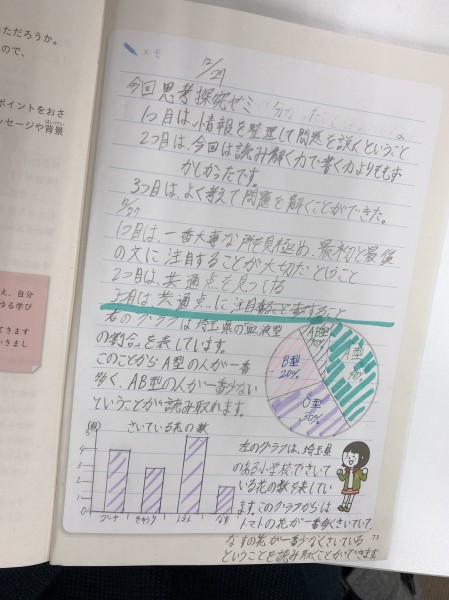 ただろうか。
ので、
ポイントをおさ
ッセージや背景
はいけい
え、自分
ゆる学び
てきます
いきまし
メモ
12/27
今回思考探究ゼミ
1つ目は、情報を整理して問題を説くということ
2つ目は、今回は読み解く力で書く力よりもむず
かしかったです。
3つ目は、よく考えて問題を解くことができた。
12/27
1つ目は、一番大事な所を見極め、最初と最後
の文に注目することが大切だということ
2つ目は、共通点を見つける
3つ目は共通点に注目
右のグラフは埼玉県の血液型
の割合を表しています。
このことからA型の人が一番
多く、AB型の人が一番少ない
ということが読み取れます。
AB型
10%
A型
40%
B型
20%
O型
30%
さいている花の数
(個)
5
4
3
2
1
0
トマト
なす
左のグラフは、埼玉県
のある小学校でさいて
いる花の数を表してい
ます。このグラフからは
トマトの花が一番多くさいていて、
なすの花が一番少なくさいている
ということを読み取ることができます
73